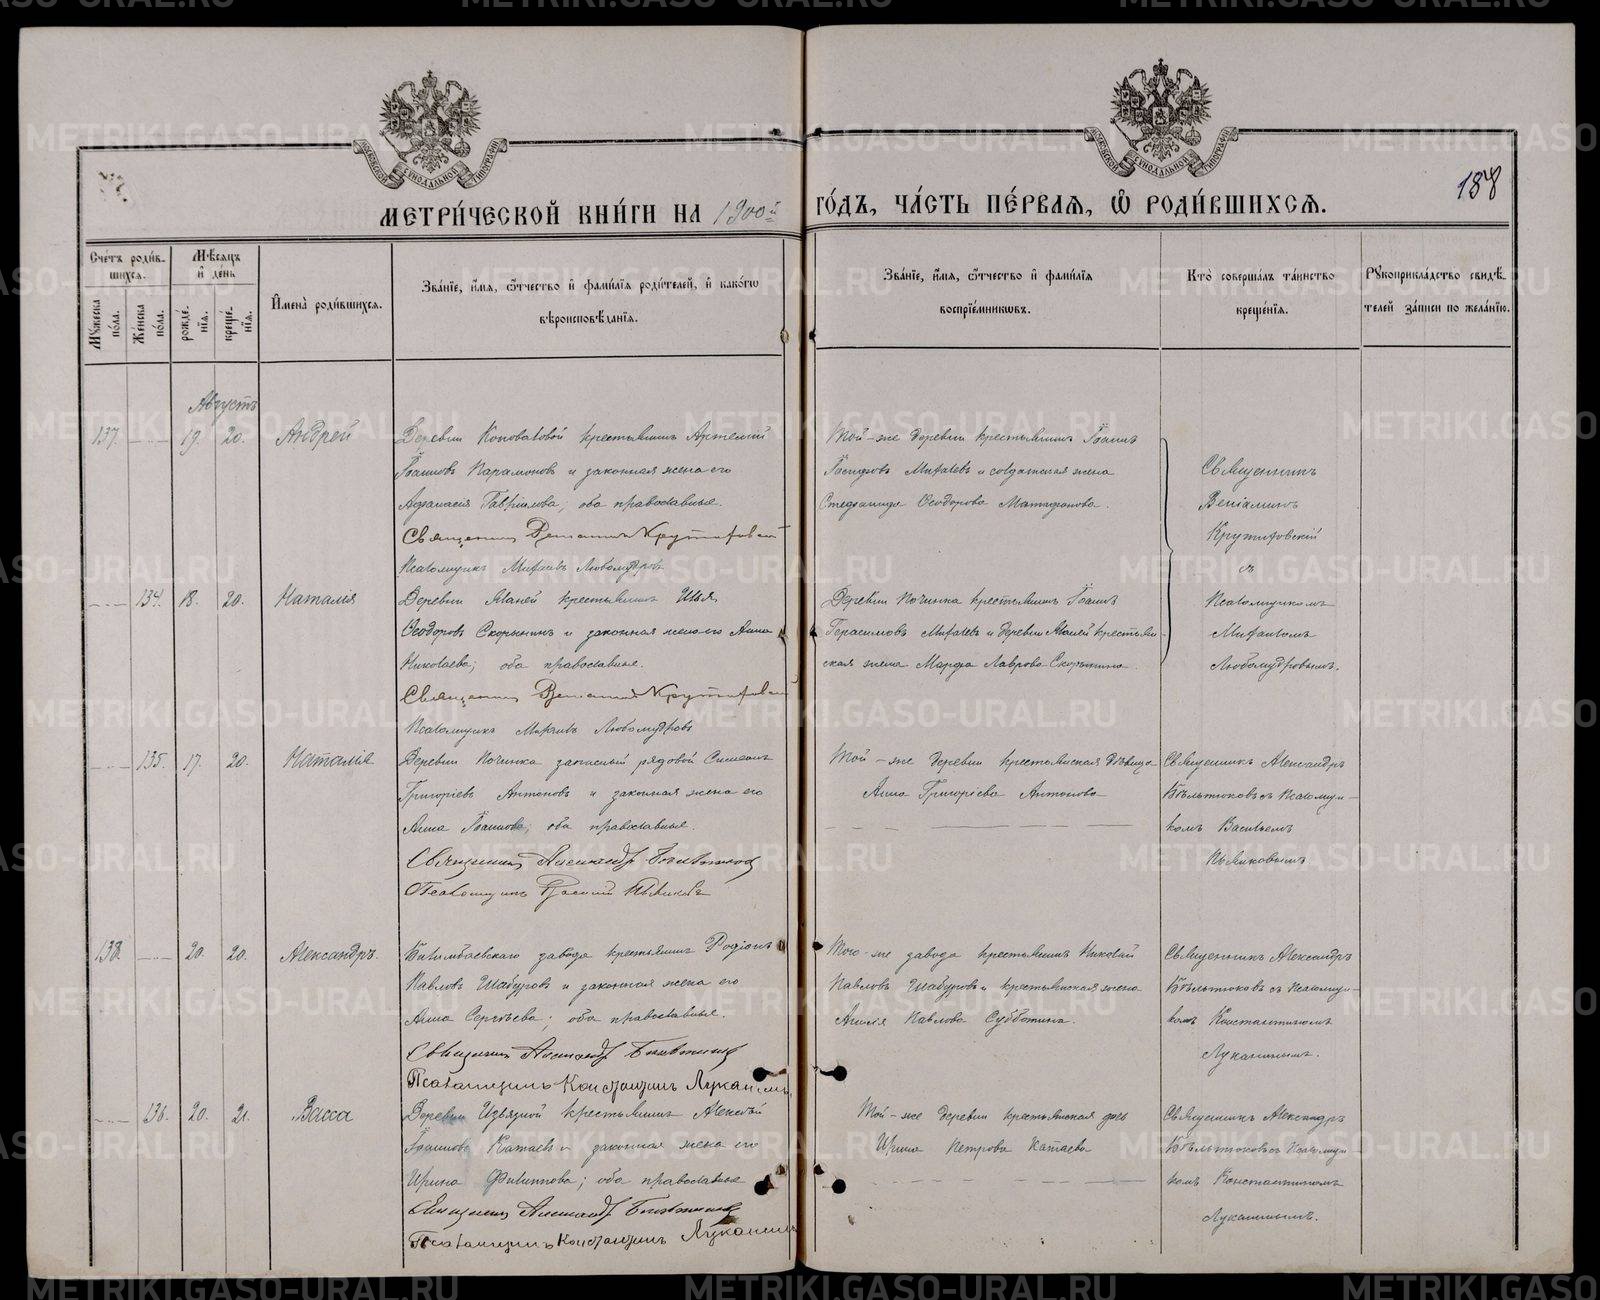 МЕТРИ́ЧЕСКОЙ КНИ́ГИ НА 1900й ГО́ДЪ, ЧА́СТЬ ПЕ́РВАЯ, Ѽ РОДИ́ВШИХСЯ.
Сче́тъ роди́вшихся.
Мѣ́сяцъ и҆ де́нь
Мꙋ́жеска по́ла.
Же́нска по́ла.
рожде́нїя.
креще́нїя.
И҆мена̀ роди́вшихся.
Зва́нїе, и҆́мя, ѻ҆́тчество и҆ фами́лїя роди́телей, и҆ како́гѡ
вѣроисповѣ́данїя.
Зва́нїе, и҆́мя, ѻ҆́тчество и҆ фами́лїя
воспрїе́мниковъ.
Кто̀ соверша́лъ та́инство
креще́нїя.
Рꙋкоприкла́дство свидѣ́
телей за́писи по жела́нїю.
Августъ
137. 19. 20. Андрей
Деревни Коноваловой крестьянинъ Артемий
Іоанновъ Парамоновъ и законная жена его
Афанасія Гавріилова; оба православные.
Священникъ Веніаминъ
Псаломщикъ Михаилъ Любомудровъ
Той-же деревни крестьянинъ Іоаннъ
Іосифовъ Михалевъ и солдатская жена
Стефанида Ѳеодорова
Священникъ
Веніаминъ
съ
Псаломщикомъ
Михаиломъ
Любомудровымъ.
134. 18. 20. Наталія
Деревни крестьянинъ Илья
Ѳеодоровъ Скорынинъ и законная жена его Анна
Николаева; оба православные.
Священникъ Веніаминъ
Псаломщикъ Михаилъ Любомудровъ
Деревни Починка крестьянинъ Іоаннъ
Герасимовъ Михалевъ и деревни крестьян-
ская жена Марфа Лаврова Скорынина.
135. 17. 20. Наталія
Деревни Починка запасный рядовой Симеонъ
Григоріевъ Антоновъ и законная жена его
Анна Іоаннова; оба православные.
Священникъ Александръ
Псаломщикъ Василій
Той-же деревни крестьянская дѣвица
Анна Григоріева Антонова
Священникъ Александръ
Бѣльтюковъ съ Псаломщи-
комъ Василіемъ
138. 20. 20. Александръ.
Билимбаевскаго завода крестьянинъ Родіонъ
Павловъ Шабуровъ и законная жена его
Анна Сергѣева; оба православные.
Священникъ Александръ
Псаломщикъ Константинъ Луканинъ
Того-же завода крестьянинъ Николай
Павловъ Шабуровъ и крестьянская жена
Павлова Субботина.
Священникъ Александръ
Бѣльтюковъ съ Псаломщи-
комъ Константиномъ
Луканинымъ.
136. 20. 21. Васса
Деревни Извязной крестьянинъ Алексѣй
Іоанновъ Катаевъ и законная жена его
Ирина Филиппова; оба православные
Священникъ Александръ
Псаломщикъ Константинъ Луканинъ
Той-же деревни крестьянская дочь
Ирина Петрова Катаева
Священникъ Александръ
Бѣльтюковъ съ Псаломщи-
комъ Константиномъ
Луканинымъ.
METRIKI.GASO-URAL.RU